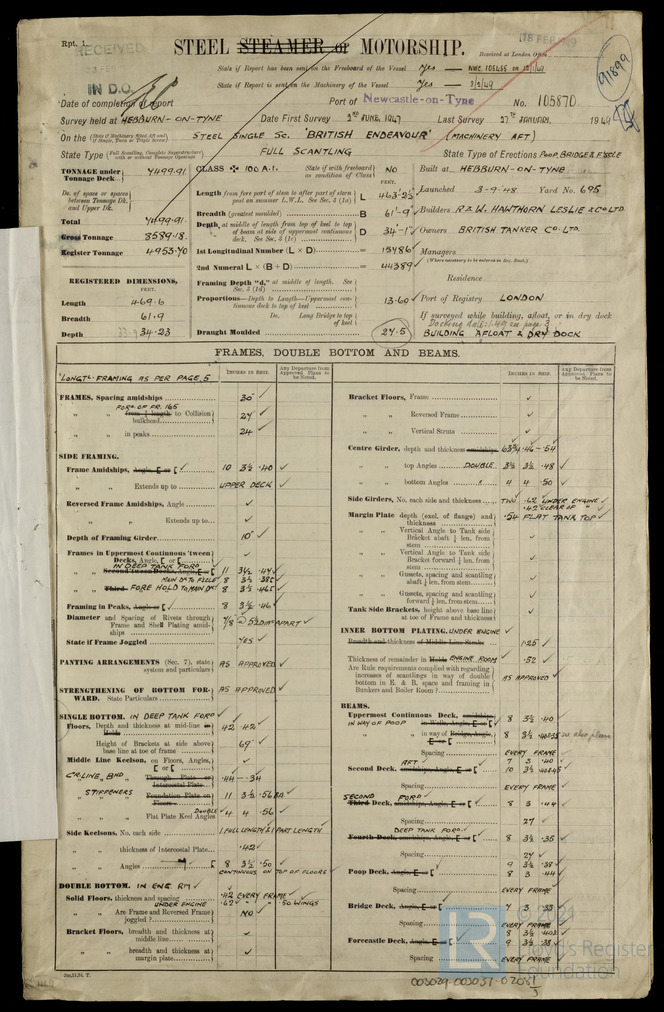 Rpt. 1.
RECEIVED
IN D.O.
18 FEB 1949
STEEL STEAMER or MOTORSHIP.
Received at London Office
State if Report has been sent on the Freeboard of the Vessel Yes — NWC. 105455 on 12/1/49
State if Report is sent on the Machinery of the Vessel Yes —
91899
Date of completion of report Port of Newcastle-on-Tyne No. 105870
Survey held at HEBBURN-ON-TYNE Date First Survey 2ND JUNE, 1947 Last Survey 27TH JANUARY, 1949
On the (State if Machinery fitted Aft and if Single, Twin or Triple Screw) STEEL SINGLE SC. 'BRITISH ENDEAVOUR' (MACHINERY AFT)
State Type (Full Scantling, Complete Superstructure with or without Tonnage Openings) FULL SCANTLING State Type of Erections POOP, BRIDGE & F'XCLE
TONNAGE under Tonnage Deck 7499.91
Do. of space or spaces between Tonnage Dk. and Upper Dk.
Total 7499.91
Gross Tonnage 8589.18
Register Tonnage 4953.70
REGISTERED DIMENSIONS,
FEET.
Length 469.6
Breadth 61.9
Depth 34.23
CLASS ✠ 100 A.1. State if with freeboard as condition of Class NO
FEET.
Length from fore part of stem to after part of stern post on summer L.W.L. See Sec. 3 (1a) L 463'-2½"
Breadth (greatest moulded) B 61'-9"
Depth, at middle of length from top of keel to top of beam at side of uppermost continuous deck. See Sec. 3 (1c) D 34'-1"
1st Longitudinal Number (L × D) = 15786
2nd Numeral L × (B + D) = 44389
Framing Depth "d," at middle of length. See Sec. 3 (1d)
Proportions—Depth to Length—Uppermost continuous deck to top of keel 13.60
Do. Long Bridge to top of keel
Draught Moulded 27.5
Built at HEBBURN-ON-TYNE
Launched 3-9-48 Yard No. 695
Builders R. & W. HAWTHORN LESLIE & CO LTD.
Owners BRITISH TANKER CO. LTD.
Managers
(Where necessary to be entered in Reg. Book.)
Residence
Port of Registry LONDON
If surveyed while building, afloat, or in dry dock
BUILDING AFLOAT & DRY DOCK
FRAMES, DOUBLE BOTTOM AND BEAMS.
'LONGTL FRAMING AS PER PAGE 5
INCHES IN SHIP.
Any Departure from Approved Plans to be Noted.
FRAMES, Spacing amidships 30"
" " FORD OF FR. 165 from ⅕ length to Collision bulkhead 27"
" " in peaks 24"
SIDE FRAMING.
Frame Amidships, Angle, E or [ 10 3½ .40
" " Extends up to UPPER DECK
Reversed Frame Amidships, Angle
" " Extends up to
Depth of Framing Girder 10"
Frames in Uppermost Continuous 'tween Decks, Angle, E or [
IN DEEP TANK FORD
" " Second 'tween Decks, Angle, E or [ 11 3½ .47
MAIN DK TO F'XCLE 8 3½ .385
" " Third FORE HOLD TO MAIN DK 8 3½ .465
Framing in Peaks, Angle or [ 8 3½ .46
Diameter and Spacing of Rivets through Frame and Shell Plating amidships 7/8" @ 5½ DIAS APART
State if Frame Joggled YES
PANTING ARRANGEMENTS (Sec. 7), state system and particulars AS APPROVED
STRENGTHENING OF BOTTOM FORWARD. State Particulars AS APPROVED
SINGLE BOTTOM. IN DEEP TANK FORD
Floors, Depth and thickness at mid-line in Holds 42 .42
Height of Brackets at side above base line at toe of frame 69"
Middle Line Keelson, on Floors, Angles, E or [
C'R LINE BHD Through Plate or Intercostal Plate .44—.34
" STIFFENERS Foundation Plate on Floors 11 3½ .56 B.A.
" " Flat Plate Keel Angles DOUBLE 4 4 .56
Side Keelsons, No. each side 1 FULL LENGTH & 1 PART LENGTH
" " thickness of Intercostal Plate .42
" " Angles 8 3½ .50
CONTINUOUS ON TOP OF FLOORS
DOUBLE BOTTOM. IN ENG. RM
Solid Floors, thickness and spacing .42 EVERY FRAME
UNDER ENGINE .62 " " .50 WINGS
" " Are Frame and Reversed Frame joggled? NO
Bracket Floors, breadth and thickness at middle line
" " breadth and thickness at margin plate
INCHES IN SHIP.
Any Departure from Approved Plans to be Noted.
Bracket Floors, Frame
" " Reversed Frame
" " Vertical Struts
Centre Girder, depth and thickness amidships 63¾ .46 - .54
" " top Angles DOUBLE 3½ 3½ .48
" " bottom Angles " 4 4 .50
Side Girders, No. each side and thickness TWO .62 UNDER ENGINE
.42 CLEAR OF "
Margin Plate depth (excl. of flange) and thickness .54 FLAT TANK TOP
" " Vertical Angle to Tank side Bracket abaft ¼ len. from stem
" " Vertical Angle to Tank side Bracket forward ¼ len. from stem
" " Gussets, spacing and scantling abaft ¼ len. from stem
" " Gussets, spacing and scantling forward ¼ len. from stem
Tank Side Brackets, height above base line at toe of Frame and thickness
INNER BOTTOM PLATING. UNDER ENGINE
Breadth and thickness of Middle Line Strake 1.25
Thickness of remainder in Holds ENGINE ROOM .52
Are Rule requirements complied with regarding increases of scantlings in way of double bottom in E. & B. space and framing in Bunkers and Boiler Room? AS APPROVED
BEAMS.
Uppermost Continuous Deck, amidships
IN WAY OF POOP in Wells, Angle, E or [ 8 3½ .40
" " in way of Bridge, Angle, E or [ 8 3½ see also plan
Spacing EVERY FRAME
AFT 7 3 .40
Second Deck, amidships, Angle, E or [ 10 3½
Spacing EVERY FRAME
SECOND FORD
Third Deck, amidships, Angle, E or [ 8 3 .44
Spacing 27
DEEP TANK FORD
Fourth Deck, amidships, Angle, E or [ 8 3½ .35
Spacing 27
9 3½ .38
Poop Deck, Angle, E or [ 8 3 .44
Spacing EVERY FRAME
Bridge Deck, Angle, E or [ 7 3 .33
Spacing EVERY FRAME
8 3½ .403
Forecastle Deck, Angle, E or [ 9 3½ .38
Spacing EVERY FRAME
© 2021
Lloyd's Register
Foundation
LR
2m,11,34. T.